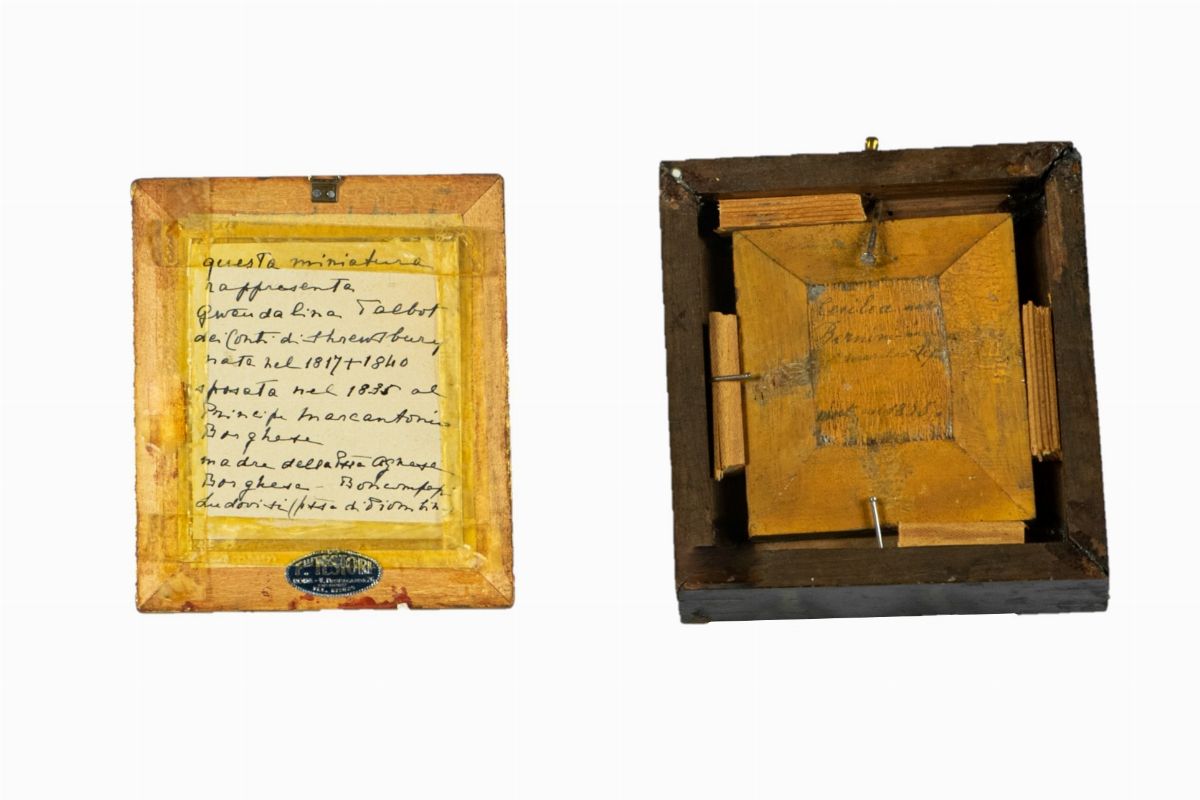 questa miniatura
rappresenta
Gwendalina Talbot
dei Conti di Shrewsbury
nata nel 1817 + 1840
sposata nel 1835 al
Principe Marcantonio
Borghese
madre della Pssa Agnese
Borghese - Boncompagni
Ludovisi (pssa di Piombino
TESTORI
ROMA
TEL.
Cecilia
Bernini
1835